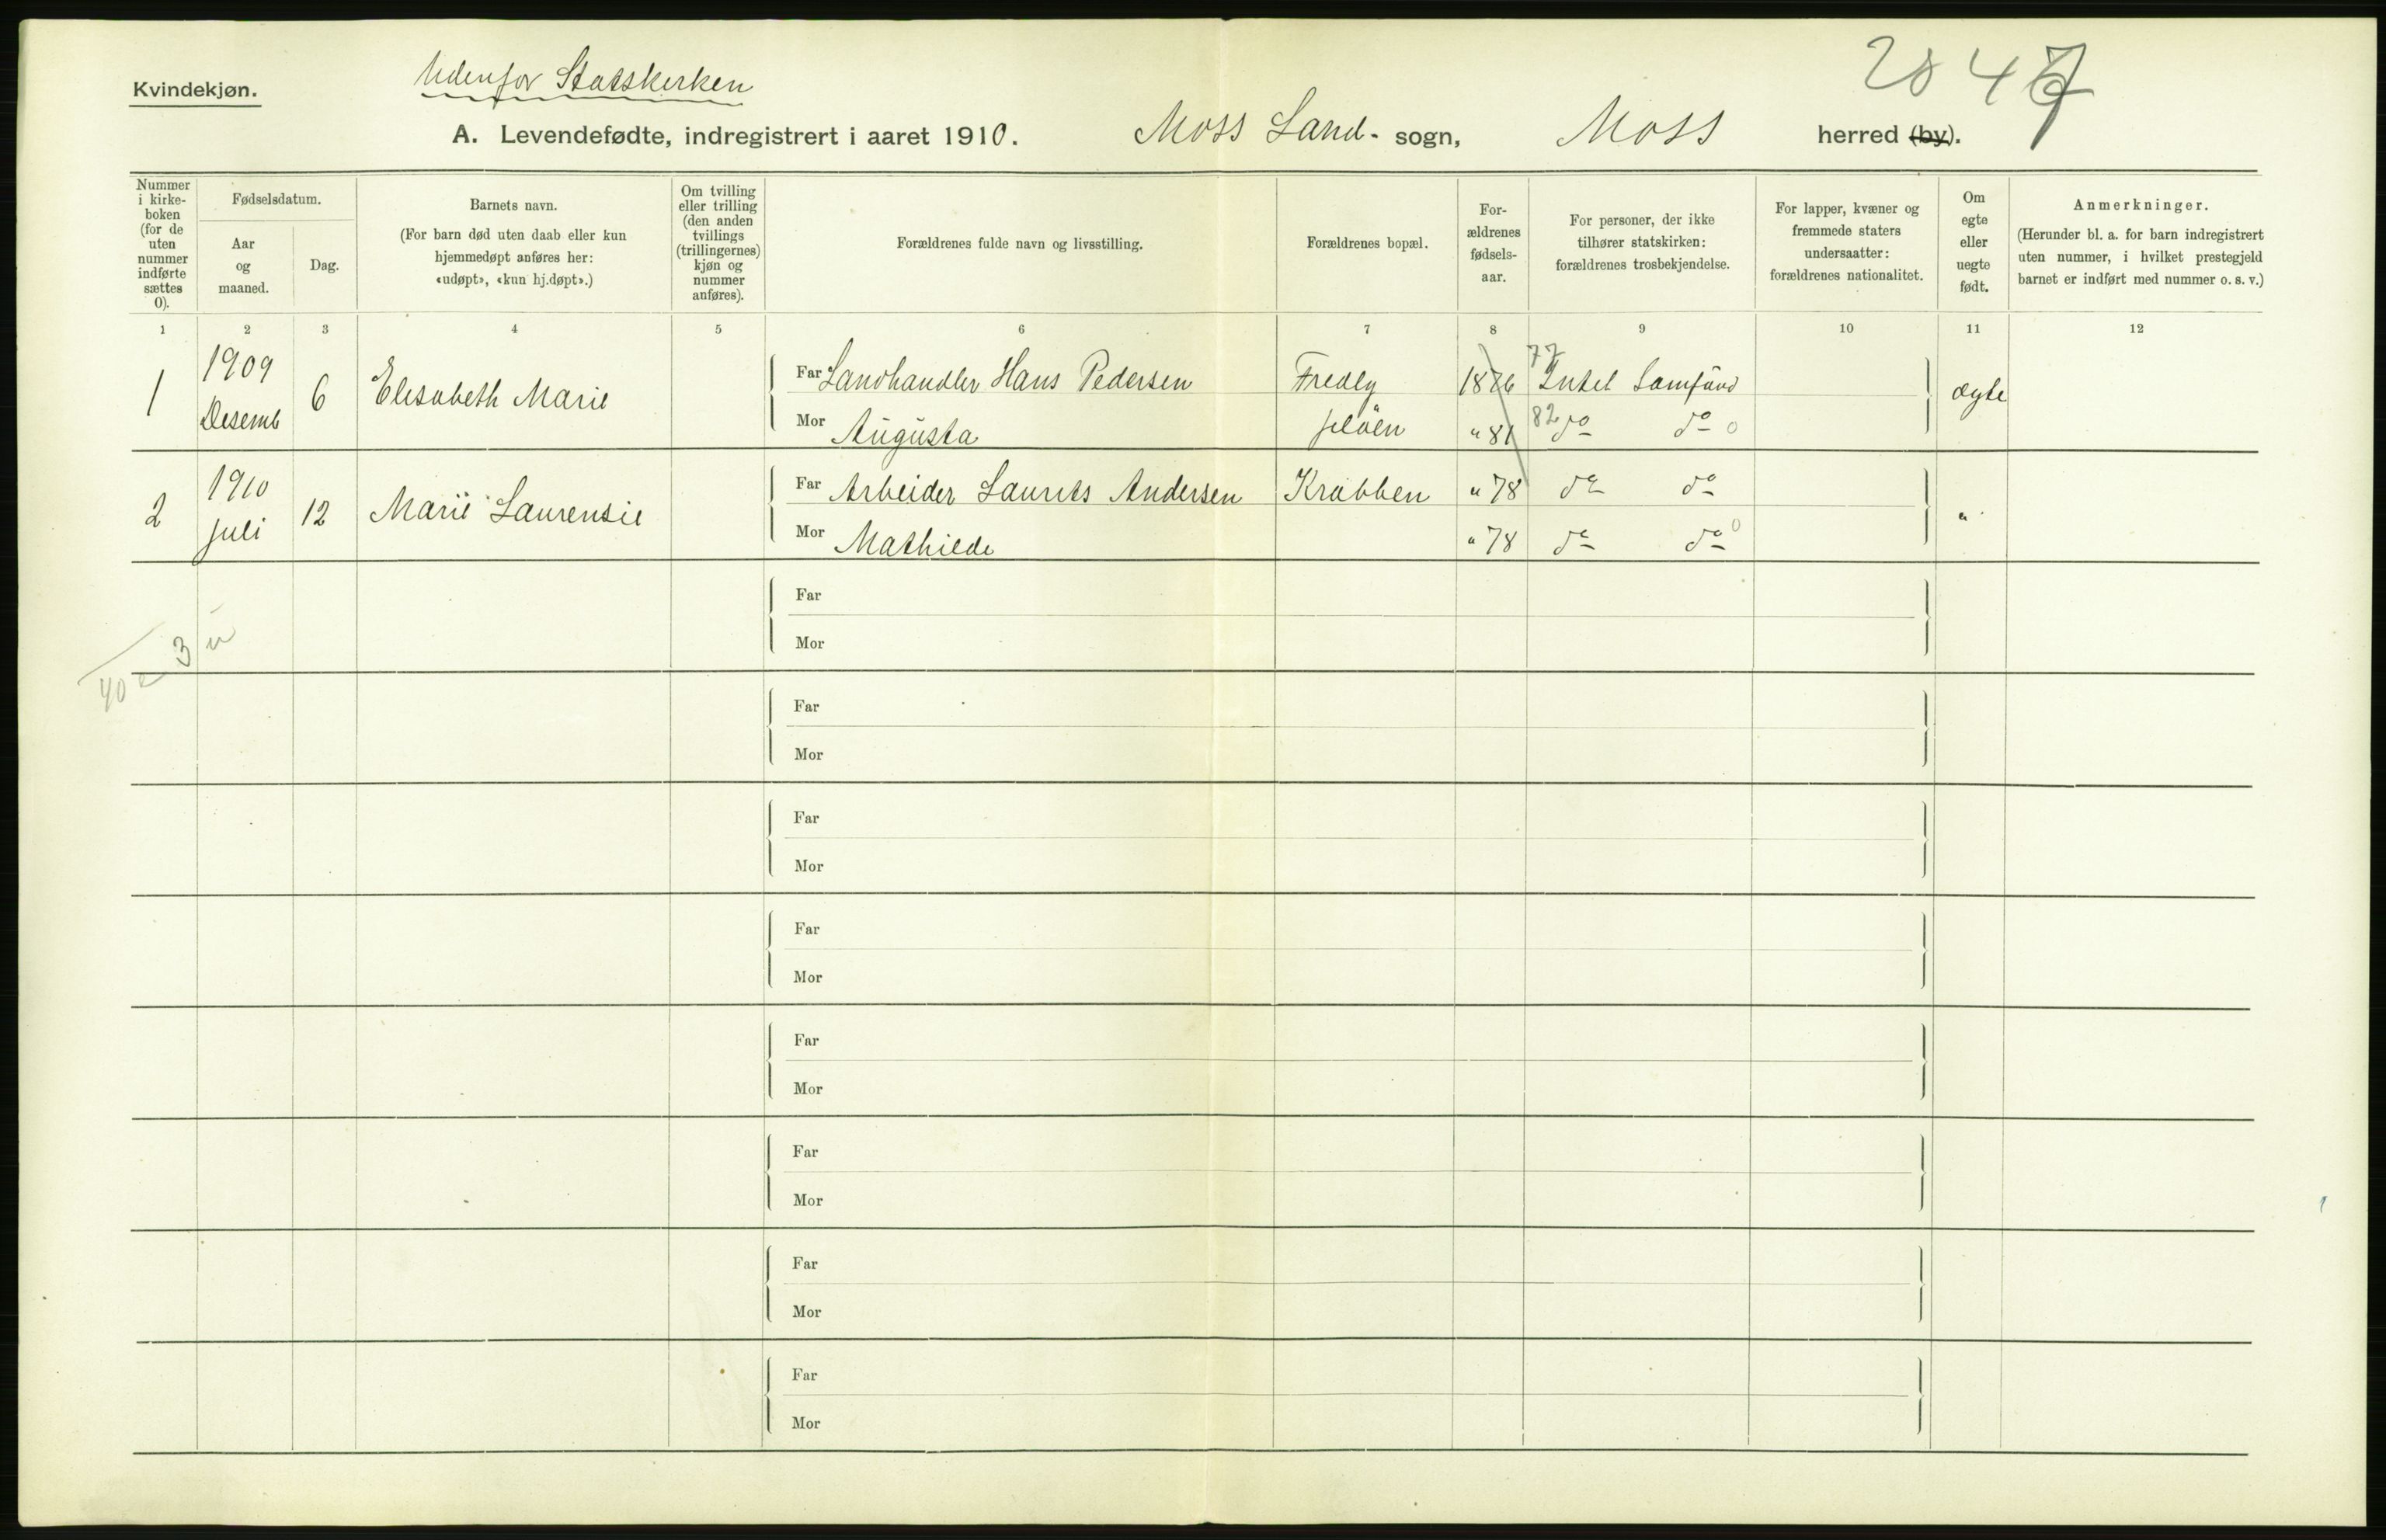 Kvindekjøn.
Udenfor Statskirken
2847
A. Levendefødte, indregistrert i aaret 1910. Moss Land- sogn, Moss herred (by).
Nummer i kirke-boken (for de uten nummer indførte sættes 0).
Fødselsdatum.
Aar og maaned.
Dag.
Barnets navn.
(For barn død uten daab eller kun hjemmedøpt anføres her: «udøpt», «kun hj.døpt».)
Om tvilling eller trilling (den anden tvillings (trillingernes) kjøn og nummer anføres).
Forældrenes fulde navn og livsstilling.
Forældrenes bopæl.
For-ældrenes fødsels-aar.
For personer, der ikke tilhører statskirken: forældrenes trosbekjendelse.
For lapper, kvæner og fremmede staters undersaatter: forældrenes nationalitet.
Om egte eller uegte født.
Anmerkninger.
(Herunder bl. a. for barn indregistrert uten nummer, i hvilket prestegjeld barnet er indført med nummer o. s. v.)
1 2 3 4 5 6 7 8 9 10 11 12
1 1909 Desemb 6 Elisabeth Marie
Far Landhandler Hans Pedersen Fredly 1876 77 Intet Samfund ægte
Mor Augusta Jeløen " 81 82 do do 0
2 1910 Juli 12 Marie Laurensie
Far Arbeider Laurits Andersen Krabben " 78 do do "
Mor Mathilde " 78 do do 0
Far
Mor
3
40
Far
Mor
Far
Mor
Far
Mor
Far
Mor
Far
Mor
Far
Mor
Far
Mor